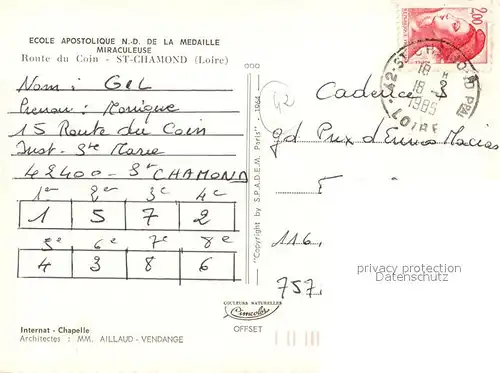 ECOLE APOSTOLIQUE N.-D. DE LA MEDAILLE
MIRACULEUSE
Route du Coin - ST-CHAMOND (Loire)
Nom : GEL
Prenom : Monique
15 Route du Coin
Inst - Ste Marie
42400 - St CHAMOND
1er 2er 3e 4e
1 5 7 2
5e 6e 7e 8e
4 3 8 6
Internat - Chapelle
Architectes : MM. AILLAUD - VENDANGE
"Copyright by S.P.A.D.E.M. Paris" 1964
COULEURS NATURELLES
OFFSET
2,00
42 ST CHAMOND PPAL
18 H
18 - 3
1985
LOIRE
42
Cadence 3
gd Prix d'Ennio
116.
757
privacy protection watermark